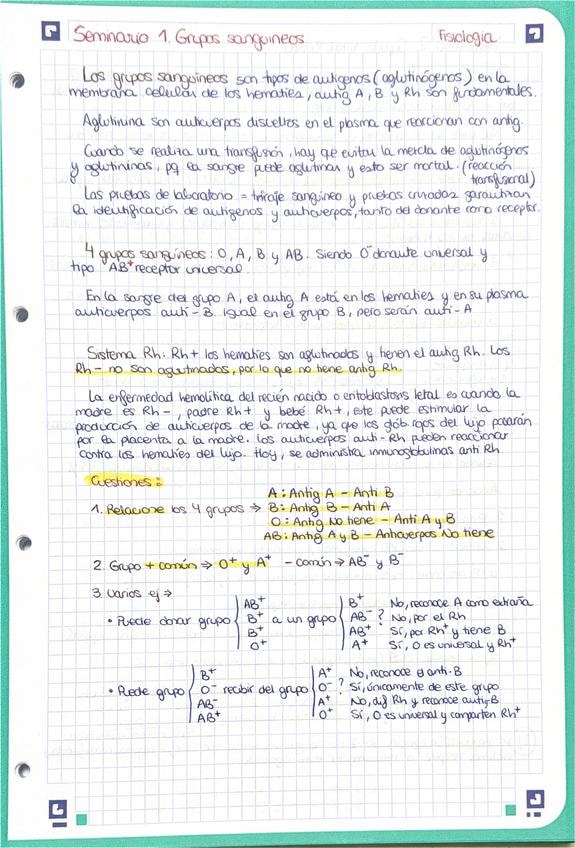 Seminario 1. Grupos sanguineos
Fisiología
Los grupos sanguineos son tipos de antigenos (aglutinógenos) en la
membrana celular de los hematies, antig A, B y Rh son fundamentales.
Aglutinina son anticuerpos disueltos en el plasma que reaccionan con antig.
Cuando se realiza una transfusión, hay que evitar la mezcla de aglutinógenos
y aglutininas, pq la sangre puede aglutinar y esto ser mortal. (reacción
transfusional)
Las pruebas de laboratorio = tiraje sanguíneo y pruebas cruzadas garantizan
la identificación de antigenos y anticuerpos, tanto del donante como receptor.
4 grupos sanguineos: O, A, B y AB. Siendo O⁻ donante universal y
tipo AB⁺ receptor universal.
En la sangre del grupo A, el antig A está en los hematies y en su plasma
anticuerpos anti-B. Igual en el grupo B, pero serán anti-A
Sistema Rh: Rh+ los hematies son aglutinados y tienen el antig Rh. Los
Rh- no son aglutinados, por lo que no tiene antig Rh.
La enfermedad hemolítica del recién nacido o eritoblastosis letal es cuando la
madre es Rh-, padre Rh+ y bebé Rh+, este puede estimular la
producción de anticuerpos de la madre, ya que los glób rojos del hijo pasarán
por la placenta a la madre. Los anticuerpos anti-Rh pueden reaccionar
contra los hematies del hijo. Hoy, se administra inmunoglobulinas anti Rh
Cuestiones:
1. Relacione los 4 grupos ⇒
A: Antig A - Anti B
B: Antig B - Anti A
O: Antig No tiene - Anti A y B
AB: Antig A y B - Anticuerpos No tiene
2. Grupo + común ⇒ O⁺ y A⁺ - común ⇒ AB⁻ y B⁻
3. Varios ej ⇒
• Puede donar grupo
AB⁺
B⁺
B⁺
O⁺
a un grupo
B⁺
AB⁻
AB⁺
A⁺
?
No, reconoce A como extraña
No, por el Rh
Sí, por Rh⁺ y tiene B
Sí, O es universal y Rh⁺
• Puede grupo
B⁺
O⁻
AB⁻
AB⁺
recibir del grupo
A⁺
O⁻
A⁺
O⁺
?
No, reconoce el anti-B
Sí, únicamente de este grupo
No, dif Rh y reconoce antig-B
Sí, O es universal y comparten Rh⁺